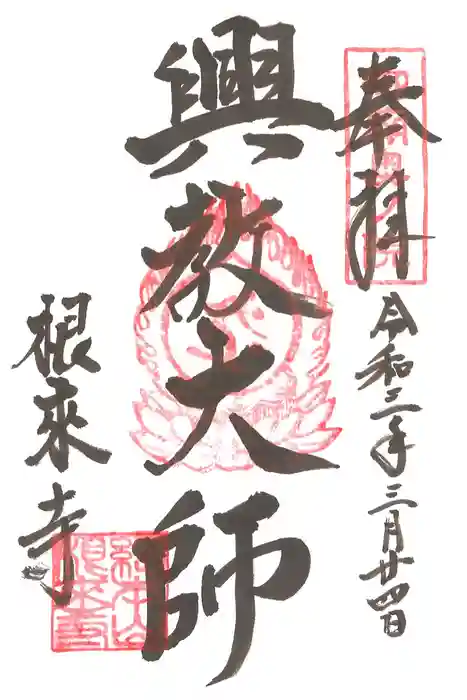 奉拝
令和三年三月廿四日
興教大師
根来寺